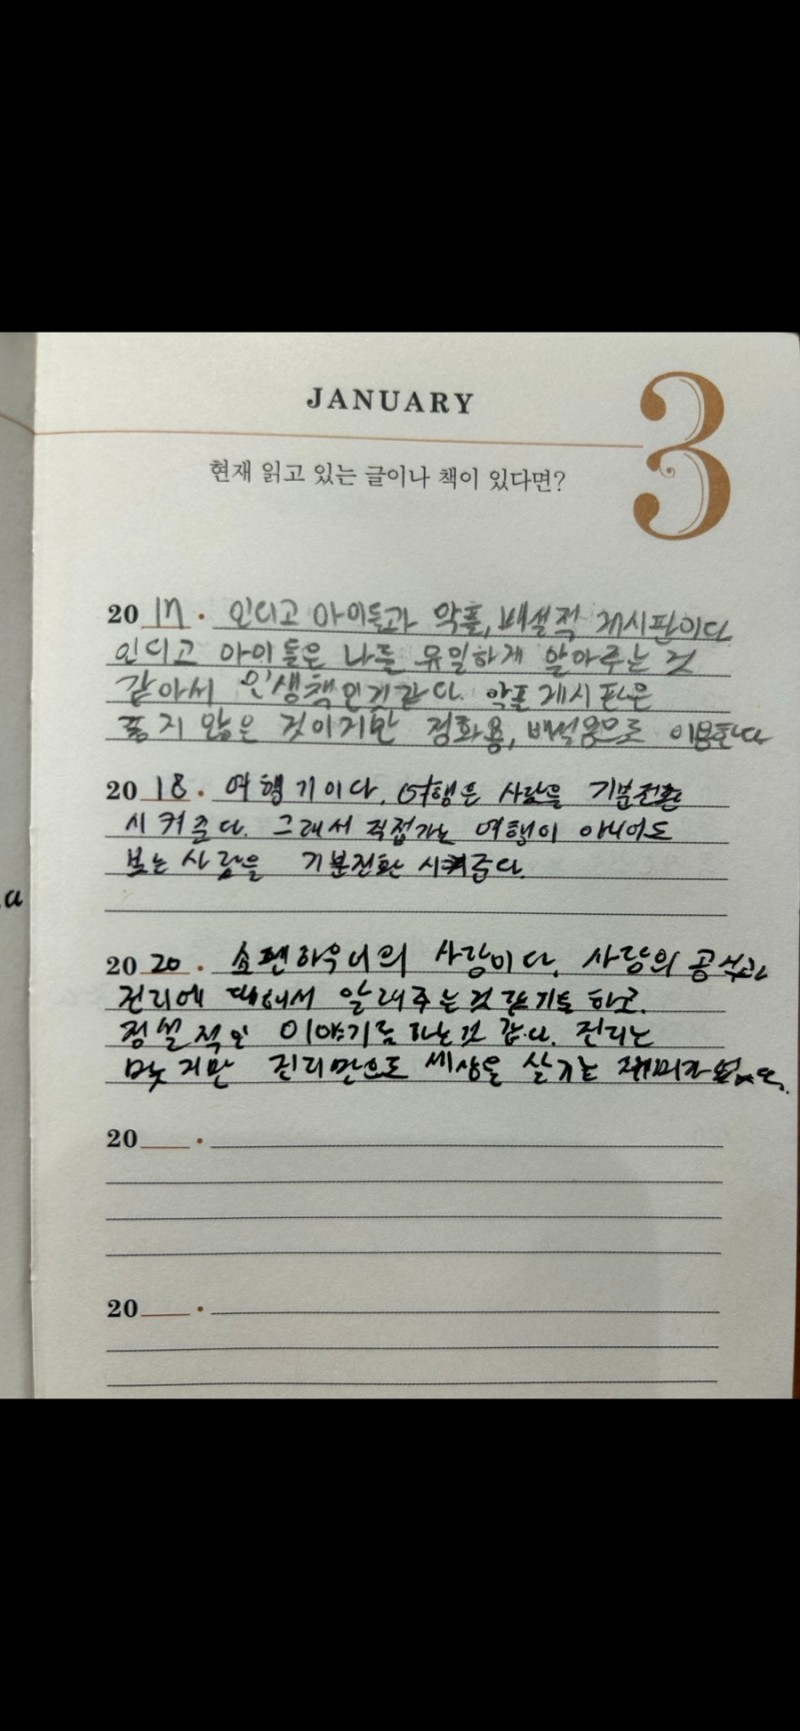 JANUARY
3
현재 읽고 있는 글이나 책이 있다면?
20 17 · 인디고 아이들과 악플, 배설적 게시판이다
인디고 아이들은 나를 유일하게 알아주는 것
같아서 인생책인거같다. 악플게시판은
좋지 않은 것이지만 정화용, 배설용으로 이용한다
20 18 · 여행기이다. 여행은 사람을 기분전환
시켜준다. 그래서 직접가는 여행이 아니어도
보는 사람을 기분전환 시켜준다.
a
20 20 · 쇼펜하우어의 사랑이다. 사랑의 공식과
진리에 대해서 알려주는것 같기도 하고.
정설적인 이야기를 하는것 같다. 진리는
맞지만 진리만으로 세상을 살기는 재미가 없다.
20 ·
20 ·